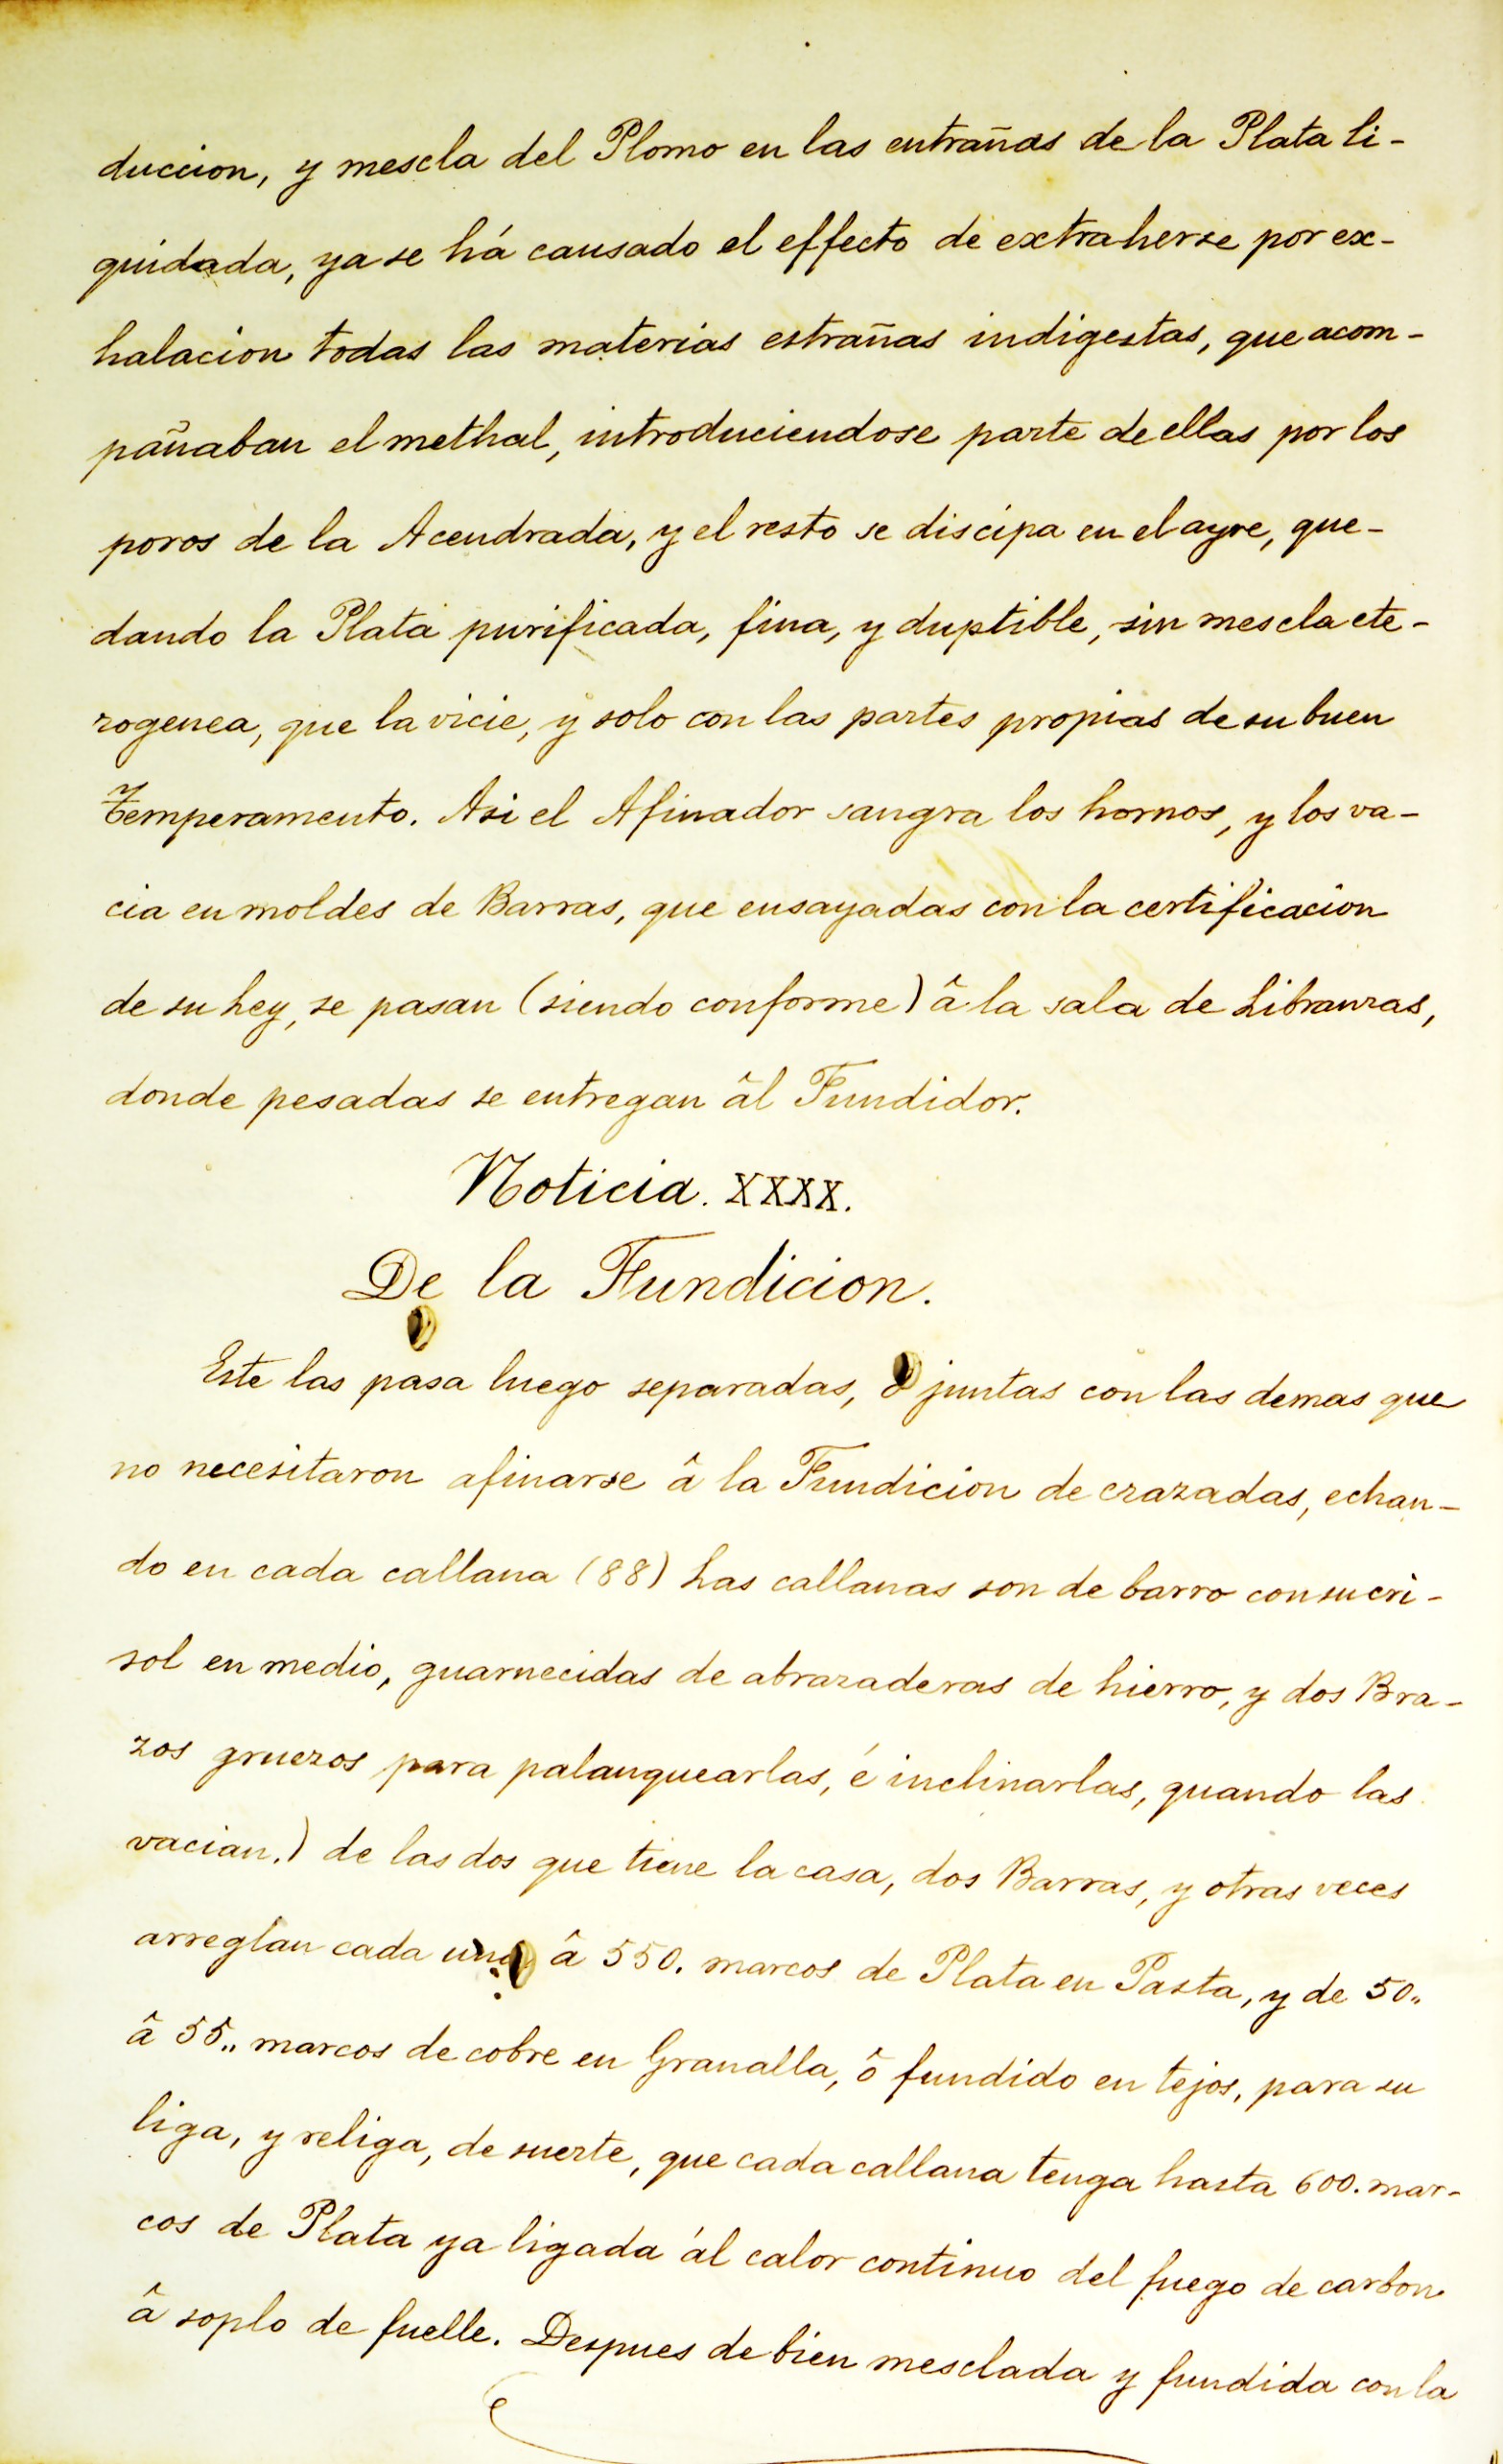 duccion, y mescla del Plomo en las entrañas de la Plata li-
quidada, ya se há causado el effecto de extraherse por ex-
halacion todas las materias estrañas indigestas, que acom-
pañaban el methal, introduciendose parte de ellas por los
poros de la Acendrada, y el resto se discipa en el ayre, que-
dando la Plata purificada, fina, y duptible, sin mescla ete-
rogenea, que la vicie, y solo con las partes propias de su buen
Temperamento. Asi el Afinador sangra los hornos, y los va-
cia en moldes de Barras, que ensayadas con la certificacion
de su Ley, se pasan (siendo conforme) â la sala de Libranzas,
donde pesadas se entregan âl Fundidor.
Noticia. XXXX.
De la Fundicion.
Este las pasa luego separadas, ô juntas con las demas que
no necesitaron afinarse â la Fundicion de crazadas, echan-
do en cada callana (88) Las callanas son de barro con su cri-
sol en medio, guarnecidas de abrazaderas de hierro, y dos Bra-
zos gruezos para palanquearlas, é inclinarlas, quando las
vacian.) de las dos que tiene la casa, dos Barras, y otras veces
arreglan cada una â 550. marcos de Plata en Pasta, y de 50"
â 55" marcos de cobre en Granalla, ô fundido en tejos, para su
liga, y religa, de suerte, que cada callana tenga hasta 600. mar-
cos de Plata ya ligada ál calor continuo del fuego de carbon
â soplo de fuelle. Despues de bien mesclada y fundida con la